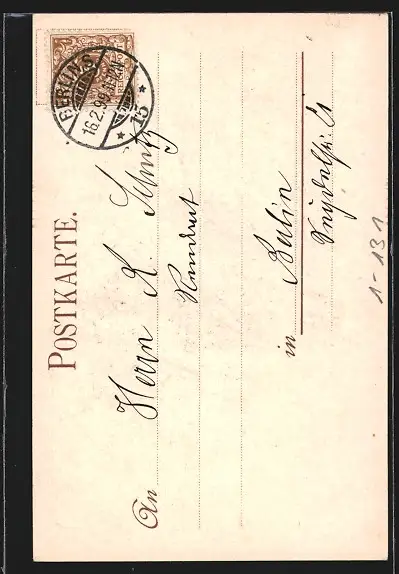 POSTKARTE.
BERLIN S
16.2.98
15
An Herrn R. Schmitz
Rendant
in Berlin
1-131